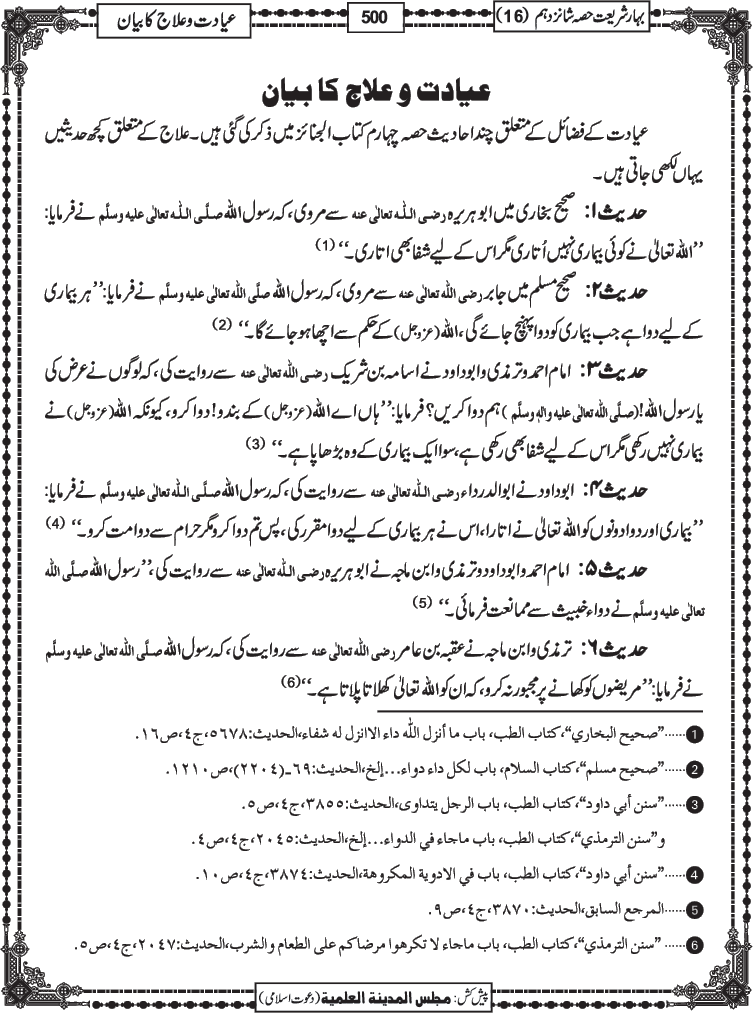 بہارِ شریعت حصہ شانزدہم (16)
500
عیادت و علاج کا بیان
عیادت و علاج کا بیان
عیادت کے فضائل کے متعلق چند احادیث حصہ چہارم کتاب الجنائز میں ذکر کی گئی ہیں۔ علاج کے متعلق کچھ حدیثیں
یہاں لکھی جاتی ہیں۔
حدیث ۱: صحیح بخاری میں ابوہریرہ رضی اللہ تعالٰی عنہ سے مروی، کہ رسول اللہ صلَّی اللہ تعالٰی علیہ وسلَّم نے فرمایا:
’’اللہ تعالیٰ نے کوئی بیماری نہیں اُتاری مگر اس کے لیے شفا بھی اتاری۔‘‘ (1)
حدیث ۲: صحیح مسلم میں جابر رضی اللہ تعالٰی عنہ سے مروی، کہ رسول اللہ صلَّی اللہ تعالٰی علیہ وسلَّم نے فرمایا: ’’ہر بیماری
کے لیے دوا ہے جب بیماری کو دوا پہنچ جائے گی، اللہ (عزوجل) کے حکم سے اچھا ہو جائے گا۔‘‘ (2)
حدیث ۳: امام احمد و ترمذی و ابوداود نے اسامہ بن شریک رضی اللہ تعالٰی عنہ سے روایت کی، کہ لوگوں نے عرض کی
یارسول اللہ! (صلَّی اللہ تعالٰی علیہ واٰلہٖ وسلَّم) ہم دوا کریں؟ فرمایا: ’’ہاں اے اللہ (عزوجل) کے بندو! دوا کرو، کیونکہ اللہ (عزوجل) نے
بیماری نہیں رکھی مگر اس کے لیے شفا بھی رکھی ہے، سوا ایک بیماری کے وہ بڑھاپا ہے۔‘‘ (3)
حدیث ۴: ابوداود نے ابوالدرداء رضی اللہ تعالٰی عنہ سے روایت کی، کہ رسول اللہ صلَّی اللہ تعالٰی علیہ وسلَّم نے فرمایا:
’’بیماری اور دوا دونوں کو اللہ تعالیٰ نے اتارا، اس نے ہر بیماری کے لیے دوا مقرر کی، پس تم دوا کرو مگر حرام سے دوا مت کرو۔‘‘ (4)
حدیث ۵: امام احمد و ابوداود و ترمذی و ابن ماجہ نے ابوہریرہ رضی اللہ تعالٰی عنہ سے روایت کی، ’’رسول اللہ صلَّی اللہ
تعالٰی علیہ وسلَّم نے دواء خبیث سے ممانعت فرمائی۔‘‘ (5)
حدیث ۶: ترمذی و ابن ماجہ نے عقبہ بن عامر رضی اللہ تعالٰی عنہ سے روایت کی، کہ رسول اللہ صلَّی اللہ تعالٰی علیہ وسلَّم
نے فرمایا: ’’مریضوں کو کھانے پر مجبور نہ کرو، کہ ان کو اللہ تعالیٰ کھلاتا پلاتا ہے۔‘‘ (6)
1 ......”صحیح البخاري“، کتاب الطب، باب ما أنزل اللّٰہ داء الا انزل لہ شفاء، الحدیث: ٥٦٧٨، ج٤، ص١٦.
2 ......”صحیح مسلم“، کتاب السلام، باب لکل داء دواء... إلخ، الحدیث: ٦٩ـ(٢٢٠٤)، ص١٢١٠.
3 ......”سنن أبي داود“، کتاب الطب، باب الرجل یتداوی، الحدیث: ٣٨٥٥، ج٤، ص٥.
و”سنن الترمذي“، کتاب الطب، باب ماجاء في الدواء... إلخ، الحدیث: ٢٠٤٥، ج٤، ص٤.
4 ......”سنن أبي داود“، کتاب الطب، باب في الادویة المکروهة، الحدیث: ٣٨٧٤، ج٤، ص١٠.
5 ......المرجع السابق، الحدیث: ٣٨٧٠، ج٤، ص٩.
6 ...... ”سنن الترمذي“، کتاب الطب، باب ماجاء لا تکرهوا مرضاکم علی الطعام والشرب، الحدیث: ٢٠٤٧، ج٤، ص٥.
پیش کش: مجلس المدینة العلمیة (دعوت اسلامی)